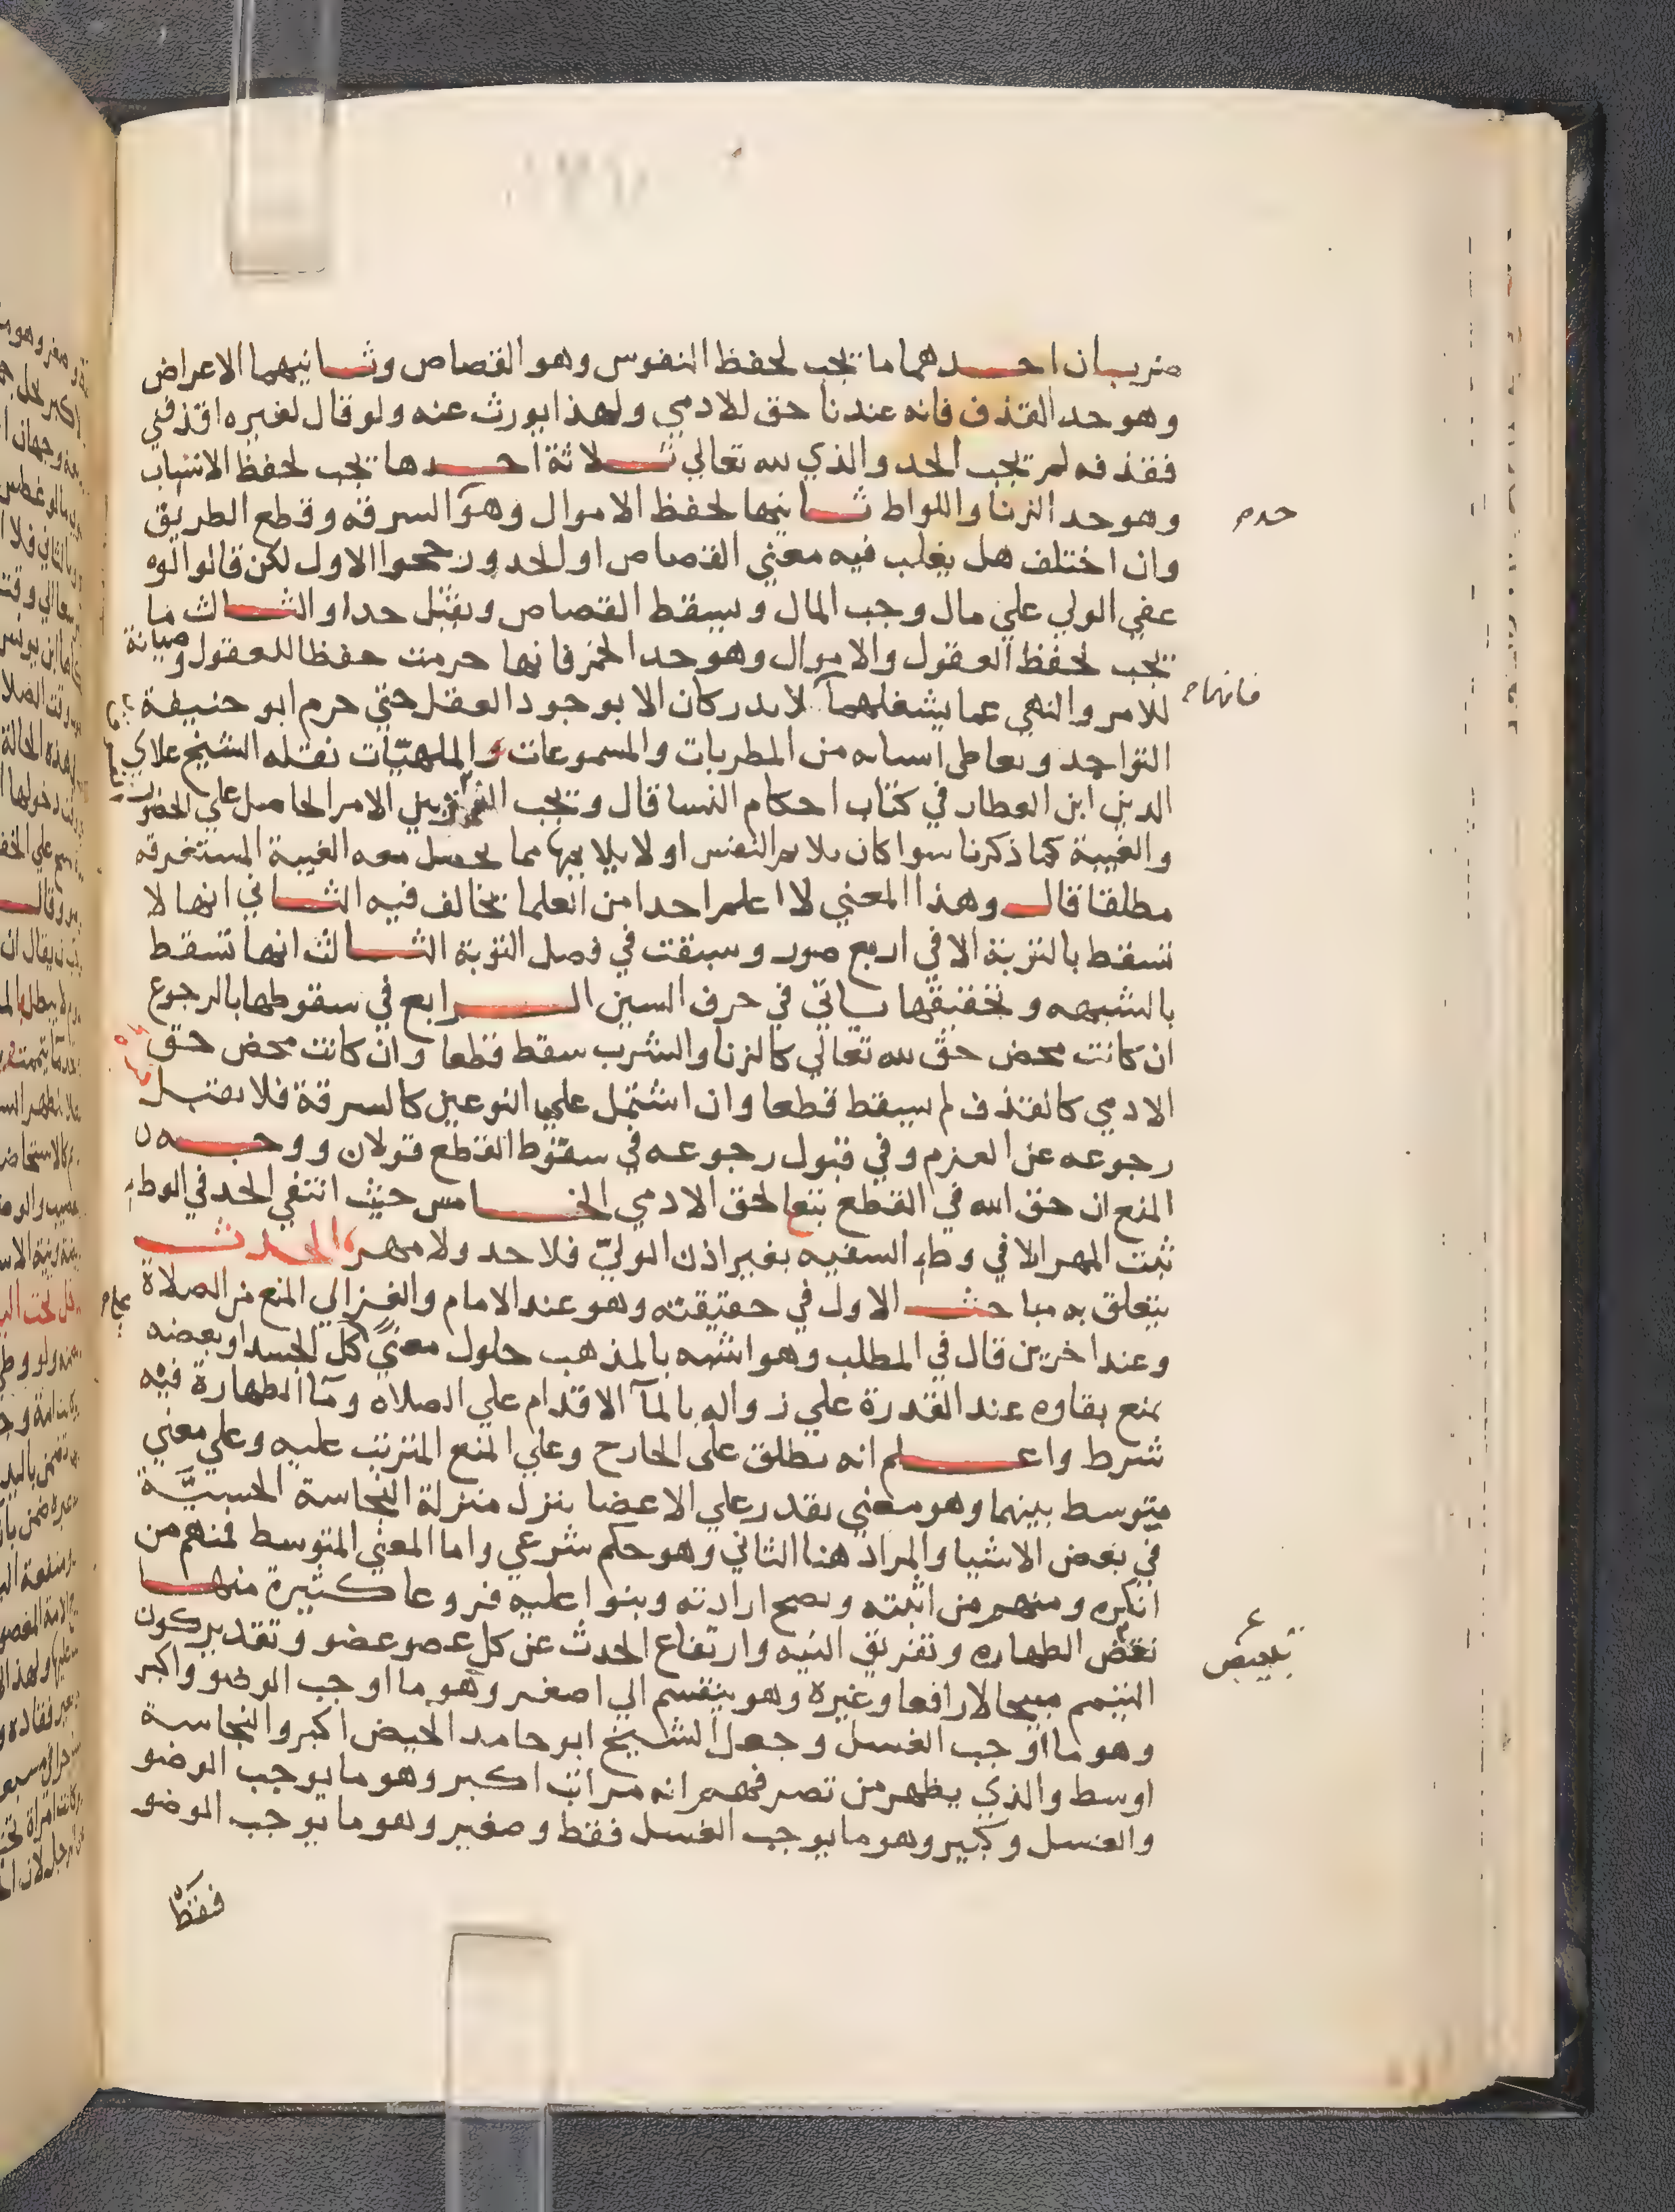 ضربان احدهما ما تجب لحفظ النفوس وهو القصاص وثانيهما الاعراض
وهو حد القذف فانه عندنا حق للادمي ولهذا يورث عنه ولو قال لغيره اقذفني
فقذفه لم تجب الحد والذي لله تعالي ثلاثة احدها تجب لحفظ الانساب
وهو حد الزنا واللواط ثانيها لحفظ الاموال وهو السرقه وقطع الطريق
حد
وان اختلف هل يغلب فيه معني القصاص او الحد ورجحوا الاول لكن قالوا لوه
عفي الولي علي مال وجب المال ويسقط القصاص ويقتل حدا والثالث ما
تجب لحفظ العقول والاموال وهو حد الخمر فانها حرمت حفظا للعقول وصيانة
للامر والنهي عما يشغلهما لا يدركان الا بوجود العقل حتي حرم ابو حنيفة
فانهما
التواجد وتعاطي اسبابه من المطربات والمسموعات والملهيات نقله الشيخ علاي
الدين ابن العطار في كتاب احكام النسا قال وتجب بين الامر الحاصل علي الحضور
والغيبة كما ذكرنا سوا كان يلايم النفس او لا يلايمها مما يحصل معه الغيبة المستغرقه
مطلقا قال وهذا المعني لا اعلم احدا من العلما يخالف فيه الثاني انها لا
تسقط بالتوبة الا في اربع صور وسبقت في فصل التوبة الثالث انها تسقط
بالشبهه وتحقيقها ياتي في حرف السين الرابع في سقوطها بالرجوع
ان كانت محض حق لله تعالي كالزنا والشرب سقط قطعا وان كانت محض حق
الادمي كالقذف لم يسقط قطعا وان اشتمل علي النوعين كالسرقة فلا يقبل
رجوعه عن العزم وفي قبول رجوعه في سقوط القطع قولان ووجه
المنع ان حق الله في القطع تبعا لحق الادمي الخامس حيث انتفي الحد في الوطء
ثبت المهر الا في وطء السفيه بغير اذن الولي فلا حد ولا مهر الحدث
يتعلق به مباحث الاول في حقيقته وهو عند الامام والغزالي المنع من الصلاة
وعند اخرين قال في المطلب وهو اشبه بالمذهب حلول معني كل الجسد او بعضه
يمنع بقاوه عند القدرة علي زواله بالمآ الاقدام علي الصلاه وما الطهارة فيه
شرط واعلم انه يطلق علي الخارج وعلي المنع المترتب عليه وعلي معني
متوسط بينهما وهو معني يقدر علي الاعضا ينزل منزلة النجاسة الحسيّة
في بعض الاشيا والمراد هنا الثاني وهو حكم شرعي واما المعني المتوسط فمنهم من
انكره ومنهم من اثبته وصحح ارادته وبنوا عليه فروعا كثيرة منها
نقض الطهاره وتفريق النيه وارتفاع الحدث عن كل عضو عضو وتقدير كون
تبعيض
التيمم مبيحا لا رافعا وغيره وهو ينقسم الي اصغر وهو ما اوجب الوضو واكبر
وهو ما اوجب الغسل وجعل الشيخ ابو حامد الحيض اكبر والنجاسة
اوسط والذي يظهر من تصرفهم انه مراتب اكبر وهو ما يوجب الوضو
والغسل وكبير وهو ما يوجب الغسل فقط وصغير وهو ما يوجب الوضو
فقط